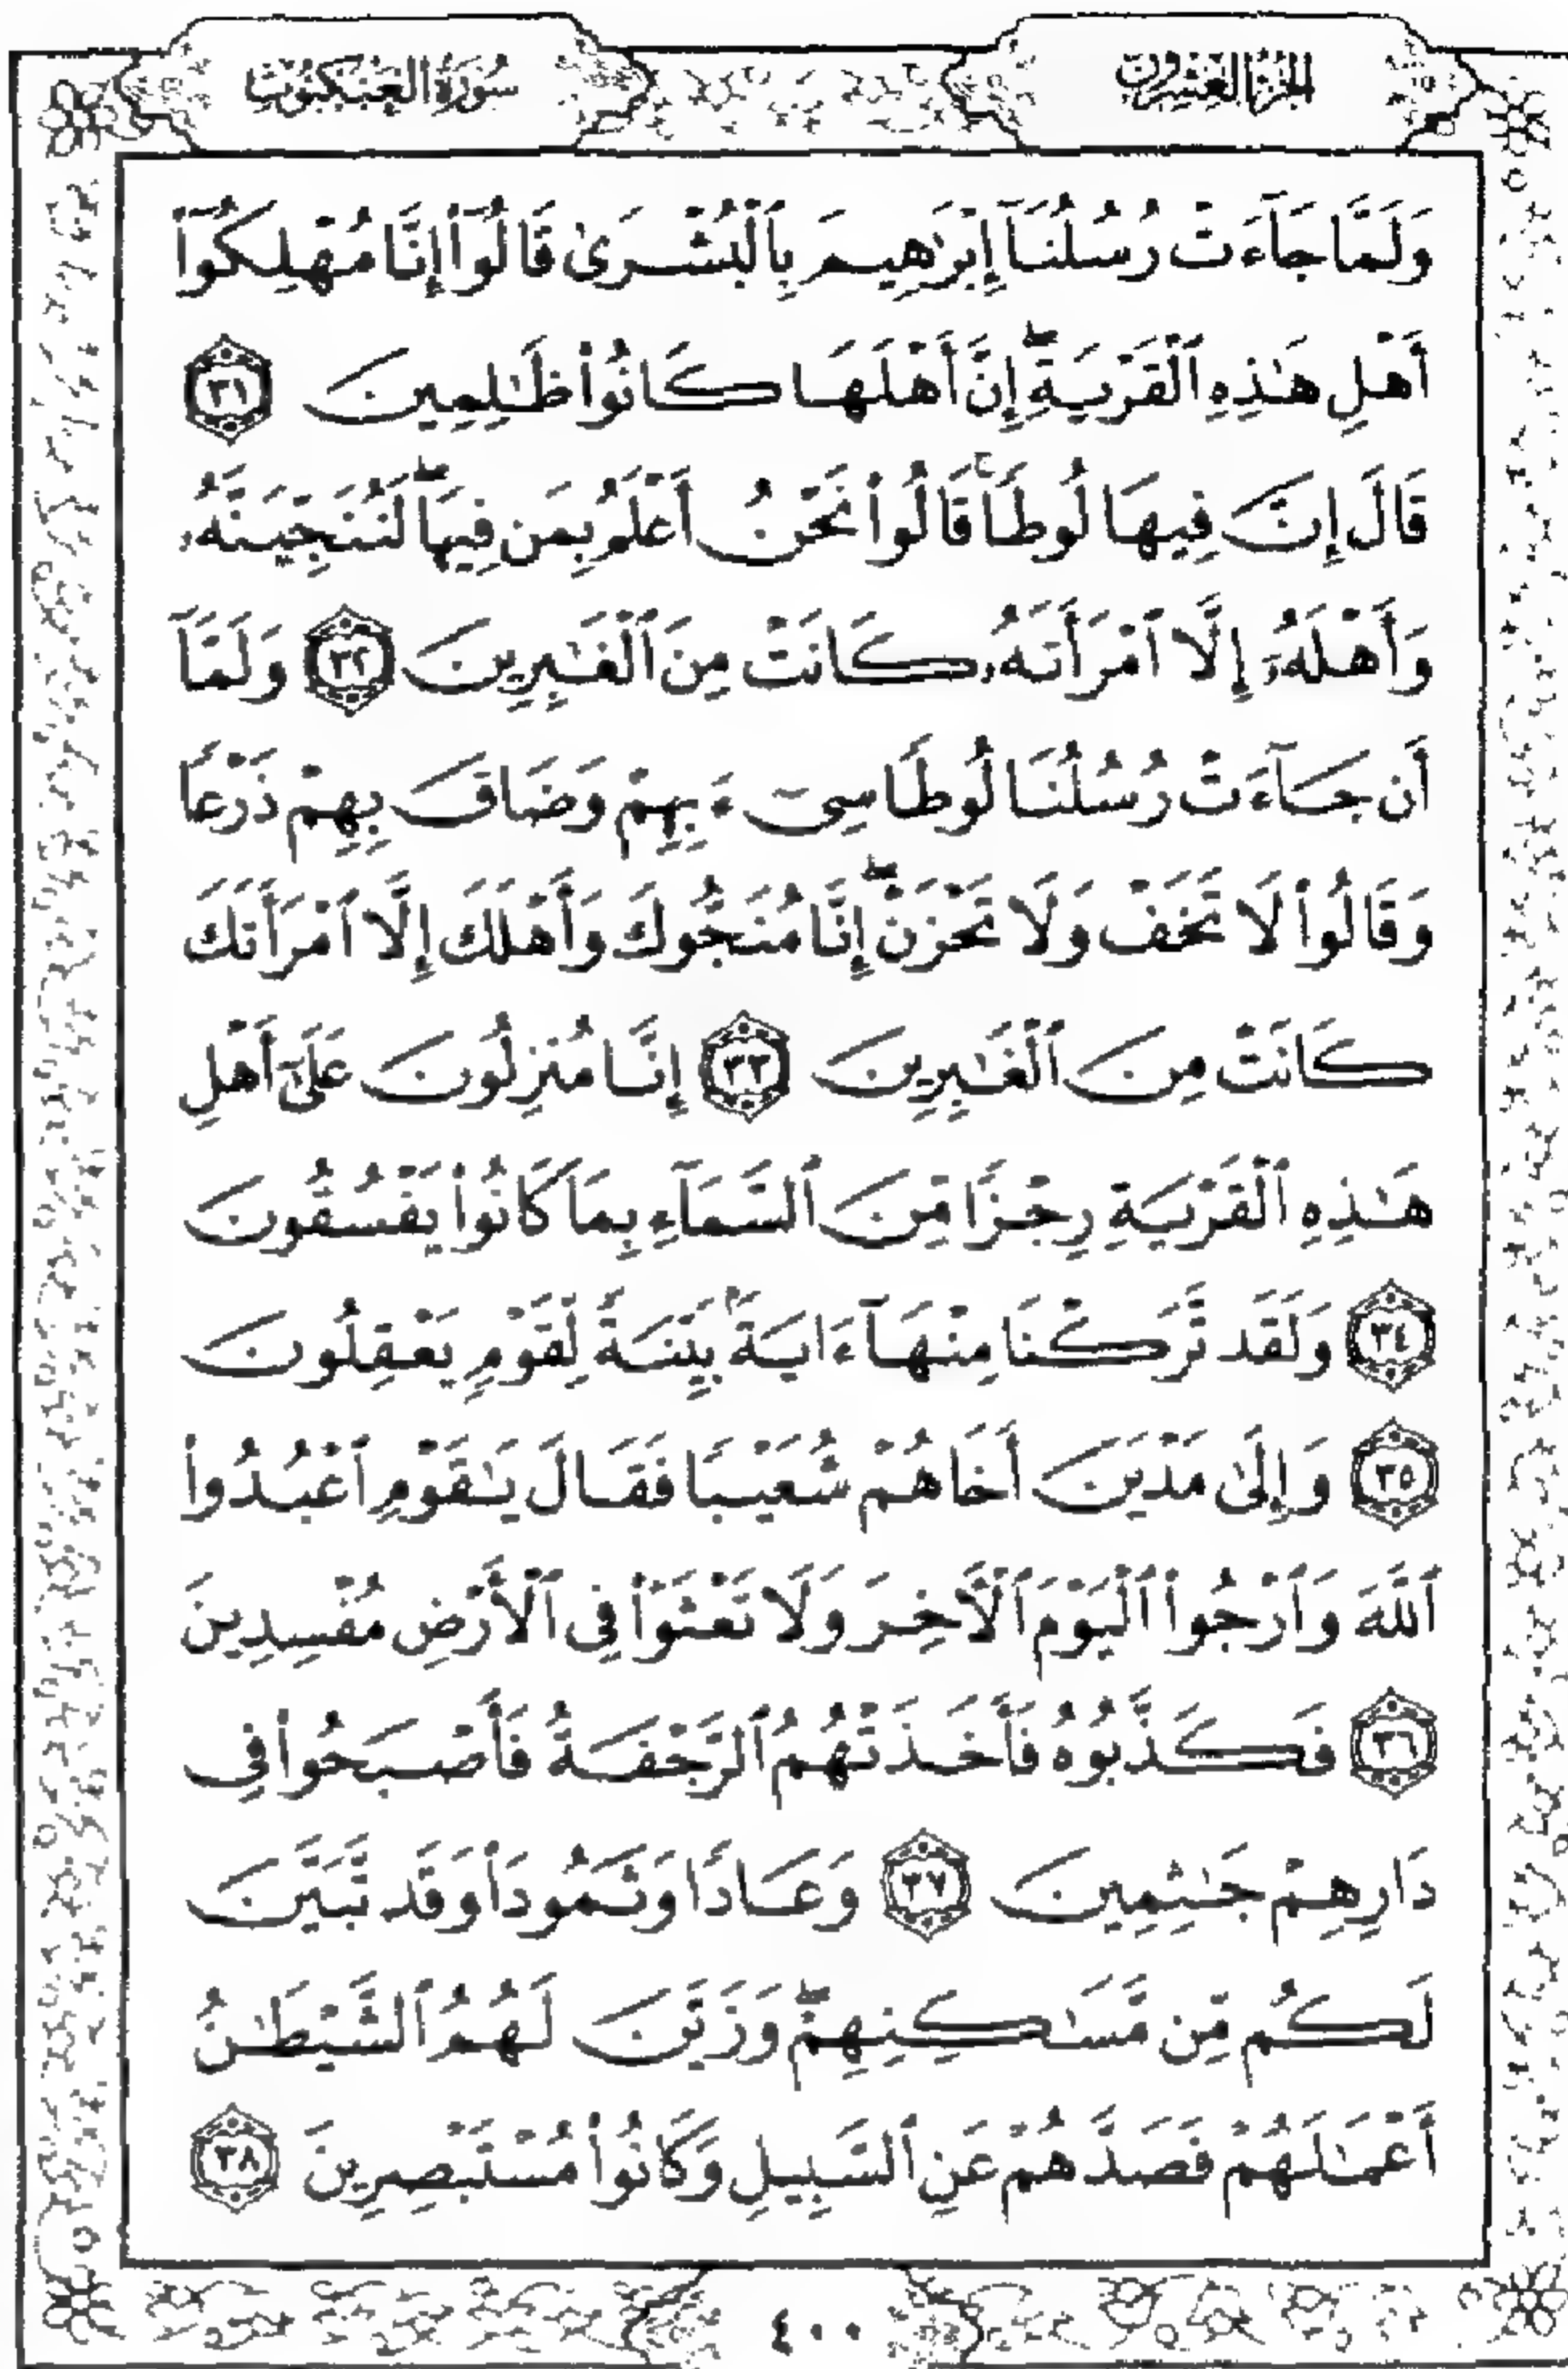 الجزء العشرون
سورة العنكبوت
وَلَمَّا جَآءَتْ رُسُلُنَآ إِبْرَٰهِيمَ بِٱلْبُشْرَىٰ قَالُوٓا۟ إِنَّا مُهْلِكُوٓا۟
أَهْلِ هَٰذِهِ ٱلْقَرْيَةِ ۖ إِنَّ أَهْلَهَا كَانُوا۟ ظَٰلِمِينَ ٣١
قَالَ إِنَّ فِيهَا لُوطًا ۚ قَالُوا۟ نَحْنُ أَعْلَمُ بِمَن فِيهَا ۖ لَنُنَجِّيَنَّهُۥ
وَأَهْلَهُۥٓ إِلَّا ٱمْرَأَتَهُۥ كَانَتْ مِنَ ٱلْغَٰبِرِينَ ٣٢ وَلَمَّآ
أَن جَآءَتْ رُسُلُنَا لُوطًا سِىٓءَ بِهِمْ وَضَاقَ بِهِمْ ذَرْعًا
وَقَالُوا۟ لَا تَخَفْ وَلَا تَحْزَنْ ۖ إِنَّا مُنَجُّوكَ وَأَهْلَكَ إِلَّا ٱمْرَأَتَكَ
كَانَتْ مِنَ ٱلْغَٰبِرِينَ ٣٣ إِنَّا مُنزِلُونَ عَلَىٰٓ أَهْلِ
هَٰذِهِ ٱلْقَرْيَةِ رِجْزًا مِّنَ ٱلسَّمَآءِ بِمَا كَانُوا۟ يَفْسُقُونَ
٣٤ وَلَقَد تَّرَكْنَا مِنْهَآ ءَايَةًۢ بَيِّنَةً لِّقَوْمٍ يَعْقِلُونَ
٣٥ وَإِلَىٰ مَدْيَنَ أَخَاهُمْ شُعَيْبًا فَقَالَ يَٰقَوْمِ ٱعْبُدُوا۟
ٱللَّهَ وَٱرْجُوا۟ ٱلْيَوْمَ ٱلْءَاخِرَ وَلَا تَعْثَوْا۟ فِى ٱلْأَرْضِ مُفْسِدِينَ
٣٦ فَكَذَّبُوهُ فَأَخَذَتْهُمُ ٱلرَّجْفَةُ فَأَصْبَحُوا۟ فِى
دَارِهِمْ جَٰثِمِينَ ٣٧ وَعَادًا وَثَمُودَا۟ وَقَد تَّبَيَّنَ
لَكُم مِّن مَّسَٰكِنِهِمْ ۖ وَزَيَّنَ لَهُمُ ٱلشَّيْطَٰنُ
أَعْمَٰلَهُمْ فَصَدَّهُمْ عَنِ ٱلسَّبِيلِ وَكَانُوا۟ مُسْتَبْصِرِينَ ٣٨
٤٠٠